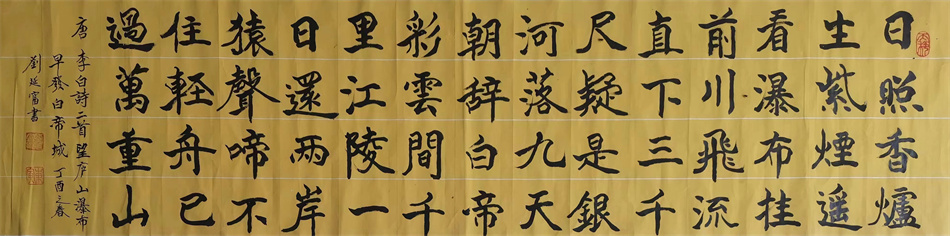 日照香爐
生紫煙遥
看瀑布挂
前川飛流
直下三千
尺疑是銀
河落九天
朝辞白帝
彩雲間千
里江陵一
日還兩岸
猿聲啼不
住輕舟已
過萬重山
唐 李白詩二首望庐山瀑布
早發白帝城 丁酉之春
劉延富書